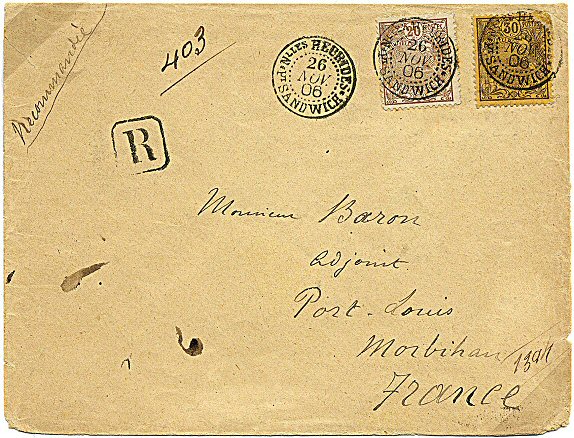 Recommandé
403
Pt Nlles HEBRIDES
26
NOV
06
SANDWICH
20
26
NOV
06
SANDWICH
30
NOV
06
SANDWICH
R
Monsieur Baron
Adjoint
Port-Louis
Morbihan
France